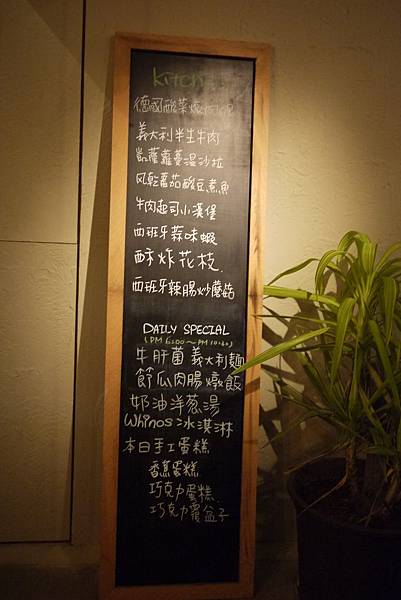 Kitchen
德國酸菜燉
義大利半生牛肉
凱薩蘿蔓溫沙拉
风乾蕃茄酸豆煮魚
牛肉起司小漢堡
西班牙蒜味蝦
酥炸花枝
西班牙辣腸炒蘑菇
DAILY SPECIAL
(PM 6:00～PM 10:00)
牛肝菌義大利麵
節瓜肉腸燉飯
奶油洋葱湯
Whinos冰淇淋
本日手工蛋糕
香蕉蛋糕
巧克力蛋糕
巧克力盒子